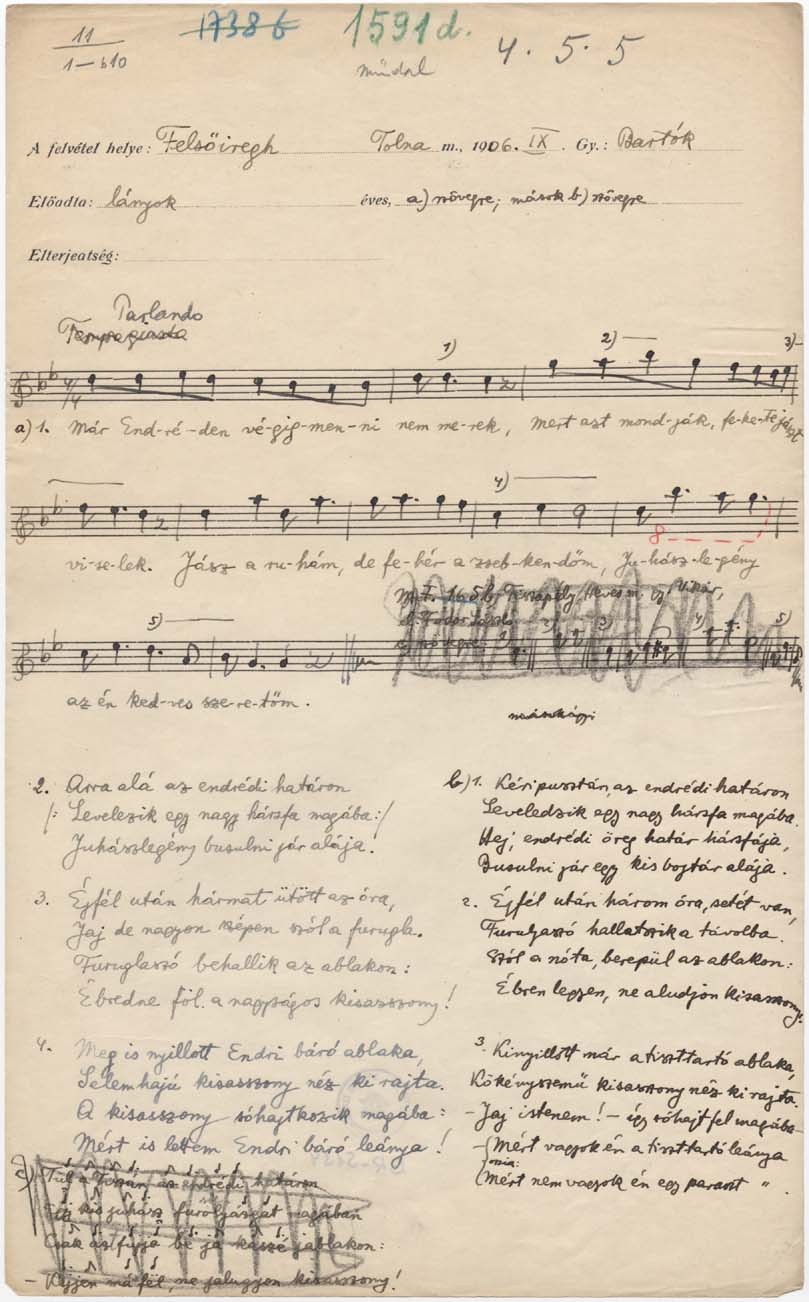 11
1—b10
1738b
1591d.
4. 5. 5
műdal
A felvétel helye: Felsőiregh Tolna m., 1906. IX. Gy.: Bartók
Előadta: lányok éves, a) szövegre; mások b) szövegre
Elterjeatség:
Parlando
Tempo giusto
1) 2) 3)
a) 1. Már End-ré-den vé-gig-men-ni nem me-rek, Mert azt mond-ják, fe-ke-te jászt
4)
vi-se-lek. Jász a ru-hám, de fe-hér a zseb-ken-dőm, Ju-hász-le-gény
8
5)
M.F. 1165b) Tiszapély, Heves m. Vikár,
Fodor László
az én ked-ves sze-re-tőm.
2. Arra alá az endrédi határon
/: Levelezik egy nagy hársfa magába :/
Juhászlegény busulni jár alája.
3. Éjfél után hármat ütött az óra,
Jaj de nagyon szépen szól a furugla.
Furuglaszó behallik az ablakon:
Ébredne föl a nagyságos kisasszony!
4. Meg is nyillott Endri báró ablaka,
Selemhajú kisasszony néz ki rajta.
A kisasszony sóhajtkozik magába:
Mért is lettem Endri báró leánya!
c) Túl a Tiszán, az endrédi határon
Egy kis juhász furölyászgat magában
Csak azt fújja be já kaszé jablakon:
— Kejjen má fel, ne jalugyon kisasszony!
b) 1. Kéripusztán, az endrédi határon
Leveledzik egy nagy hársfa magába.
Hej, endrédi öreg határ hársfája,
Busulni jár egy kis bojtár alája.
2. Éjfél után három óra, setét van,
Furulyaszó hallatszik a távolba.
Szól a nóta, berepül az ablakon:
Ébren legyen, ne aludjon kisasszony.
3. Kinyillott már a tiszttartó ablaka,
Kökényszemű kisasszony néz ki rajta.
— Jaj istenem! — így sóhajt fel magába
— Mért vagyok én a tiszttartó leánya
Mért nem vagyok én egy paraszt ".